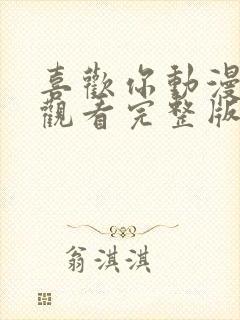 喜歡你動漫
觀看完整版
翁淇淇